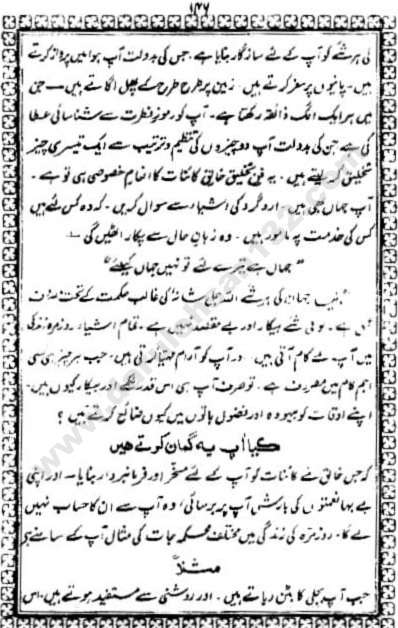 ۱۴۶
کی ہر شئے کو آپ کے لئے سازگار بنایا ہے، جس کی بدولت آپ ہوا میں پرواز کرتے
ہیں۔ پانیوں پر سفر کرتے ہیں۔ زمین پر طرح طرح کے پھل اگاتے ہیں — جن
میں ہر ایک الگ ذائقہ رکھتا ہے۔ آپ کو رموزِ فطرت سے شناسائی عطا
کی ہے جن کی بدولت آپ دو چیزوں کی تنظیم و ترتیب سے ایک تیسری چیز
تخلیق کر لیتے ہیں۔ یہ فنِ تخلیق خالقِ کائنات کا انعامِ خصوصی ہی تو ہے۔
آپ جہاں بھی ہیں۔ ارد گرد کی اشیاء سے سوال کریں۔ کہ وہ کس لئے ہیں
کس کی خدمت پر مامور ہیں۔ وہ زبانِ حال سے پکار اٹھیں گی۔
"جہاں ہے تیرے لئے تو نہیں جہاں کیلئے"
جہان کی ہر شئے اللہ جل شانہ کی غالب حکمت کے تحت
ہے۔ کوئی شئے بیکار اور بے مقصد نہیں ہے۔ تمام اشیاء روزمرہ زندگی
میں آپ کے کام آتی ہیں۔ اور آپ کو آرام مہیا کرتی ہیں۔ جب ہر چیز ہی کسی
اہم کام میں مصروف ہے۔ تو صرف آپ ہی اس قدر نکمے اور بیکار کیوں ہیں۔
اپنے اوقات کو بیہودہ اور فضول باتوں میں کیوں ضائع کرتے ہیں؟
کیا آپ یہ گمان کرتے ہیں
کہ جس خالق نے کائنات کو آپ کے لئے مسخر اور فرمانبردار بنایا۔ اور اپنی
بے بہا نعمتوں کی بارش آپ پر برسائی، وہ آپ سے ان کا حساب نہیں
لے گا۔ روزمرہ کی زندگی میں مختلف محکمہ جات کی مثال آپ کے سامنے ہے
مثلاً
جب آپ بجلی کا بٹن دباتے ہیں۔ اور روشنی سے مستفید ہوتے ہیں۔ اس